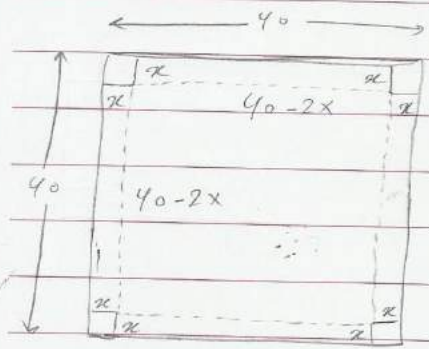 40
x x
x 40-2x x
40 40-2x
x x
x x